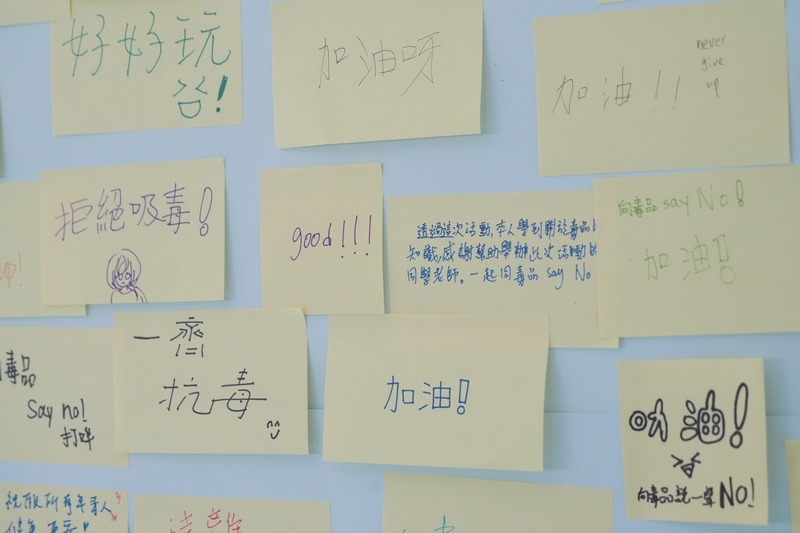 好好玩
!
加油呀
加油!!
never
give
up
拒絕吸毒!
good!!!
透過這次活動,本人學到關於毒品
知識,感謝幫助舉辦此次活動
同學老師。一起向毒品 say No
向毒品 say No!
加油!!
一齊
抗毒
加油!
毒品
Say no!
加油!
向毒品說一聲 NO!